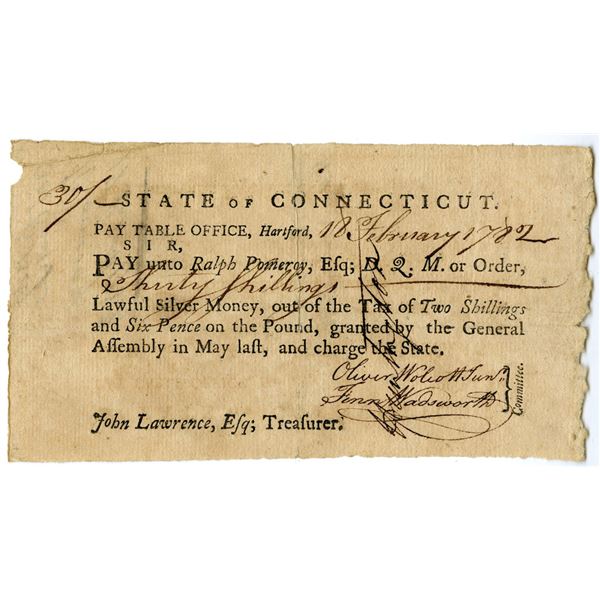 30/ STATE OF CONNECTICUT.
PAY TABLE OFFICE, Hartford, 18 February 1782
SIR,
PAY unto Ralph Pomeroy, Esq; D. Q. M. or Order,
Thirty Shillings
Lawful Silver Money, out of the Tax of Two Shillings
and Six Pence on the Pound, granted by the General
Assembly in May last, and charge the State.
Oliver Wolcott Junr.
Fenn Wadsworth
Committee.
John Lawrence, Esq; Treasurer.